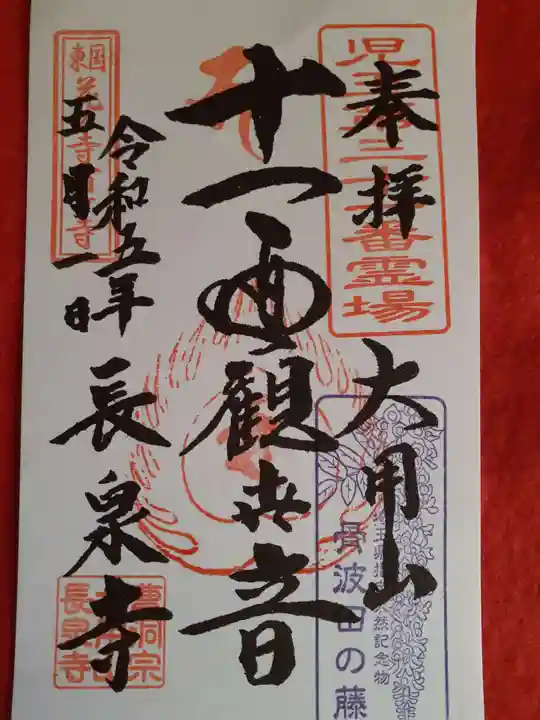 奉拝
大用山
十一面観世音
長泉寺
令和五年
五月一日
児玉第三十番霊場
東国花の寺百ヶ寺
埼玉県指定天然記念物
骨波田の藤
曹洞宗
長泉寺